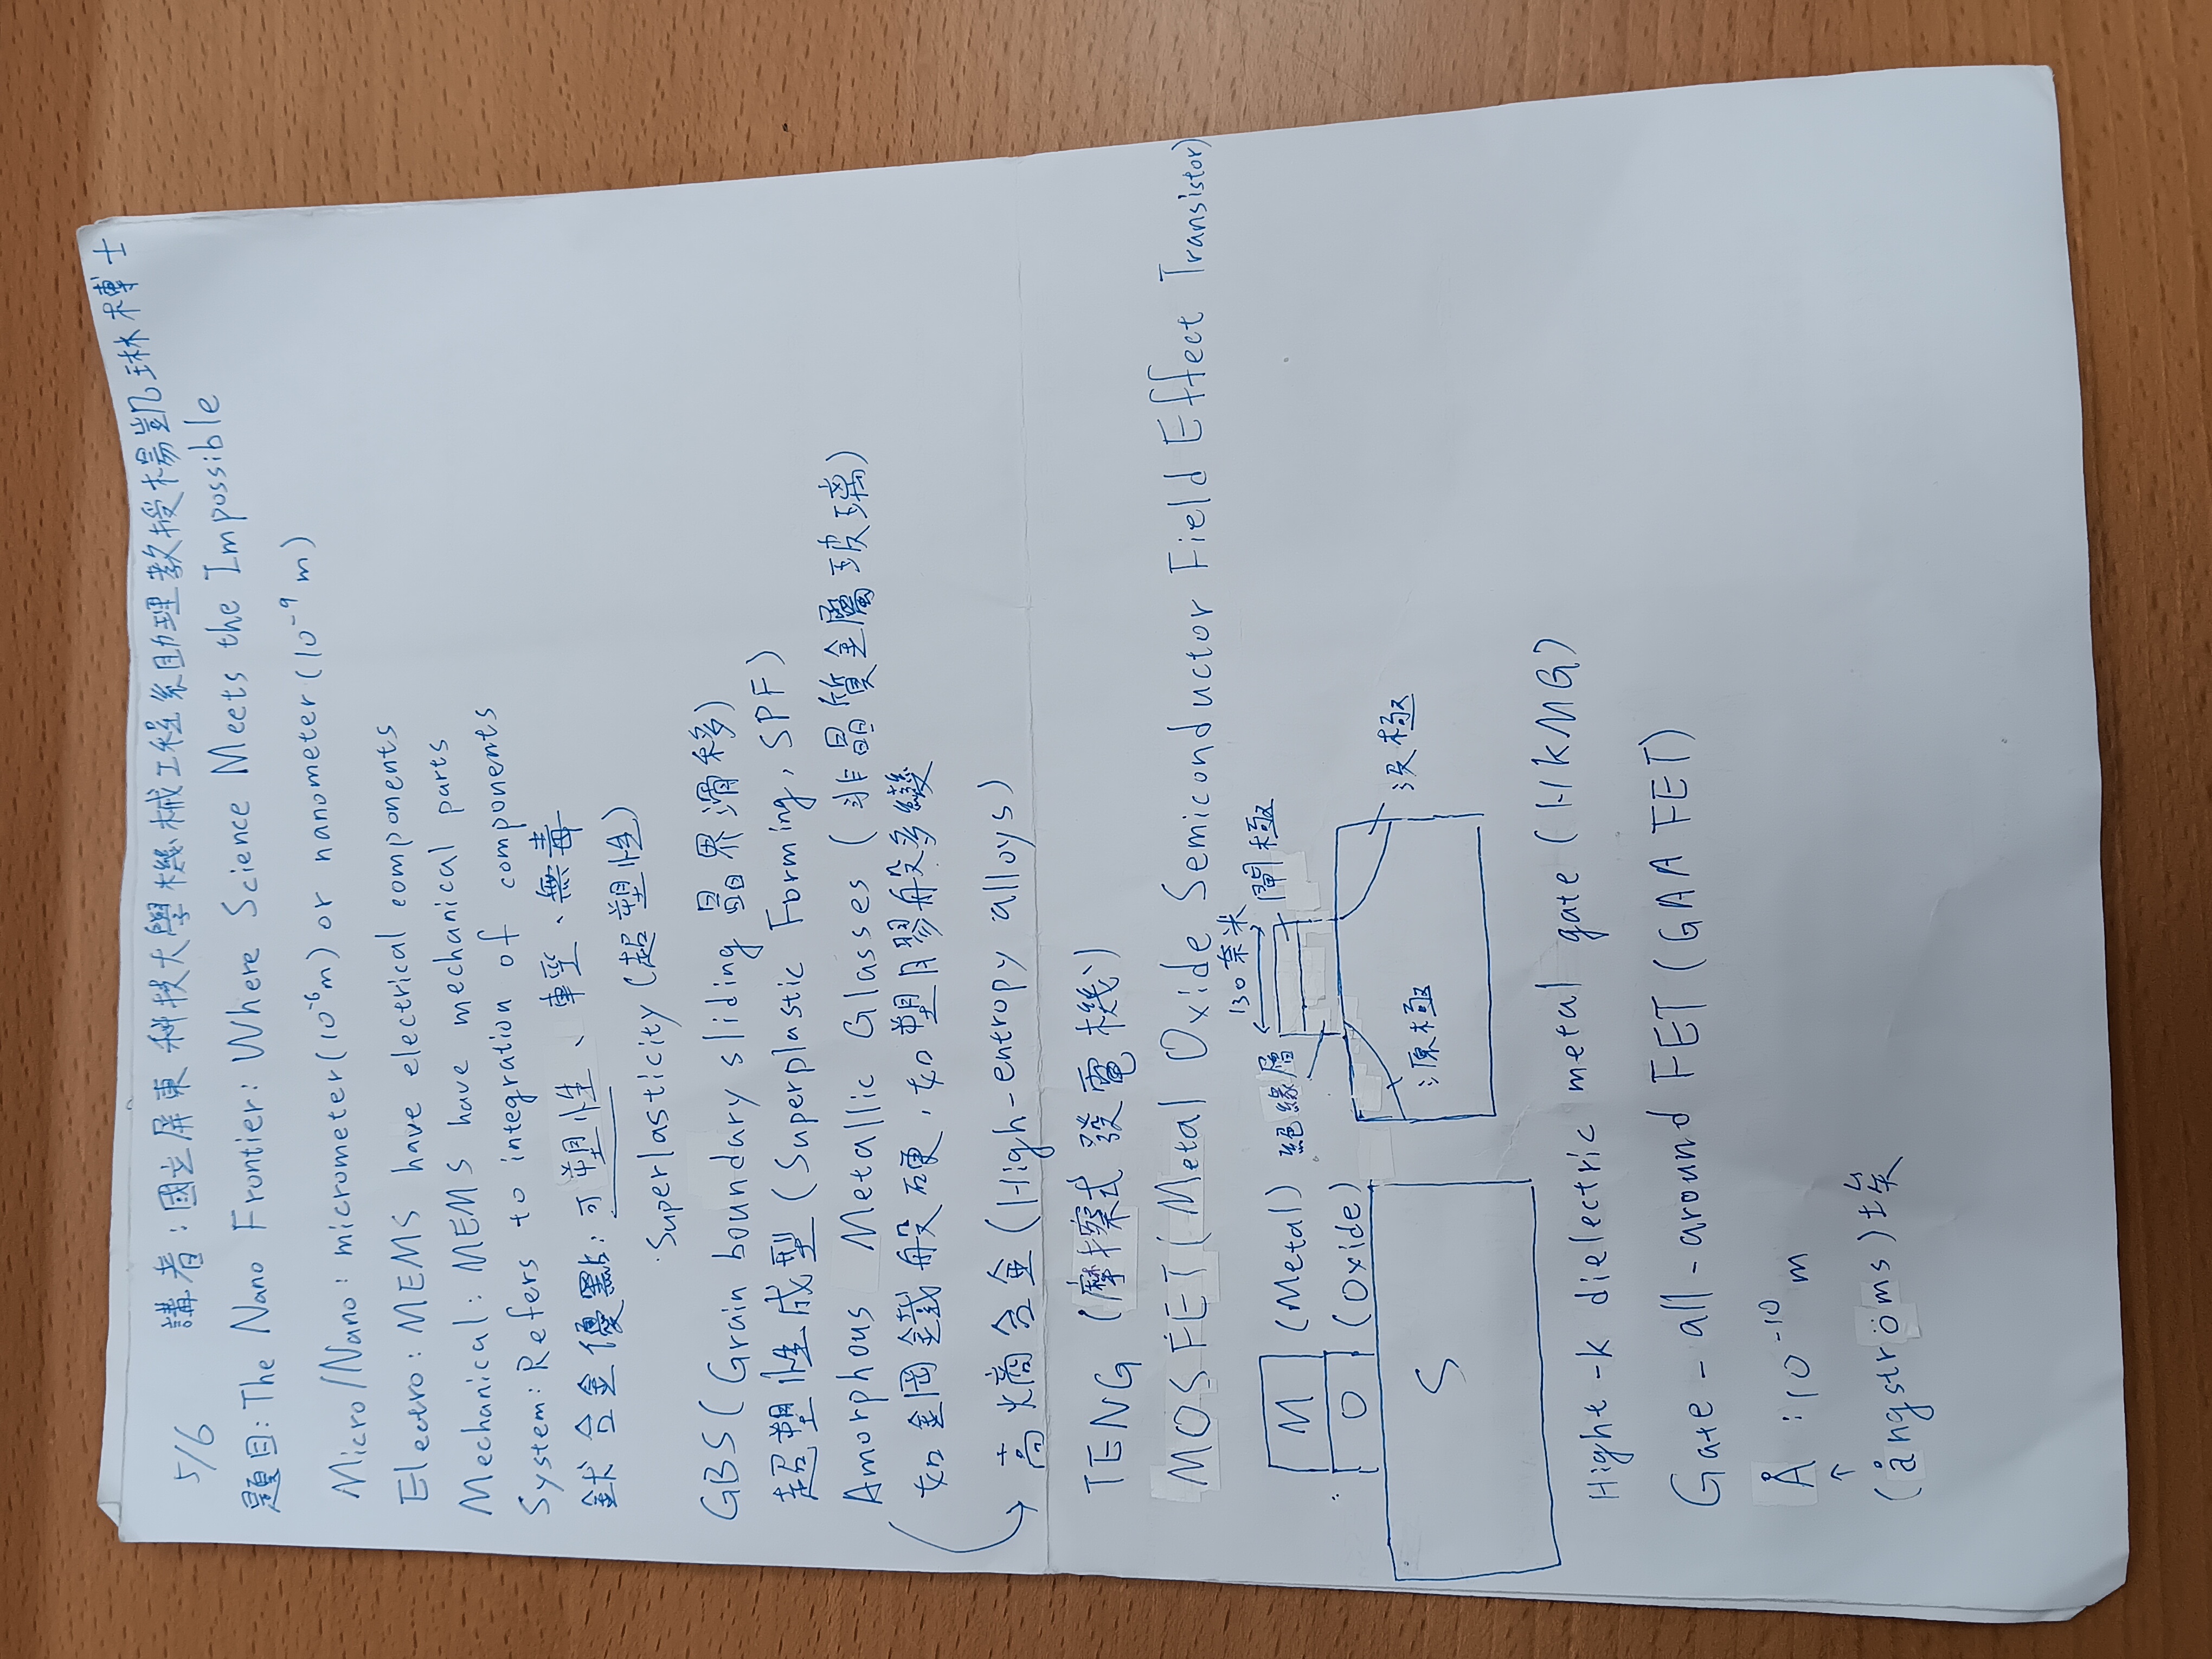 5/6 講者:國立屏東科技大學機械工程系助理教授楊凱琳博士
題目:The Nano Frontier: Where Science Meets the Impossible
Micro/Nano: micrometer(10⁻⁶m) or nanometer(10⁻⁹m)
Electro: MEMS have electrical components
Mechanical: MEMS have mechanical parts
System: Refers to integration of components
鈦合金優點:可塑性、輕、無毒
Superlasticity(超塑性)
GBS(Grain boundary sliding 晶界滑移)
超塑性成型(Superplastic Forming, SPF)
Amorphous Metallic Glasses(非晶質金屬玻璃)
如鋼鐵般硬,如塑膠般多變
→高熵合金(High-entropy alloys)
TENG(摩擦式發電機)
MOSFET(Metal Oxide Semiconductor Field Effect Transistor)
130奈米
M (Metal) 絕緣層 閘極
O (Oxide)
S 源極 汲極
Hight-k dielectric metal gate(HKMG)
Gate-all-around FET(GAAFET)
Å:10⁻¹⁰m
↑
(ångströms)埃